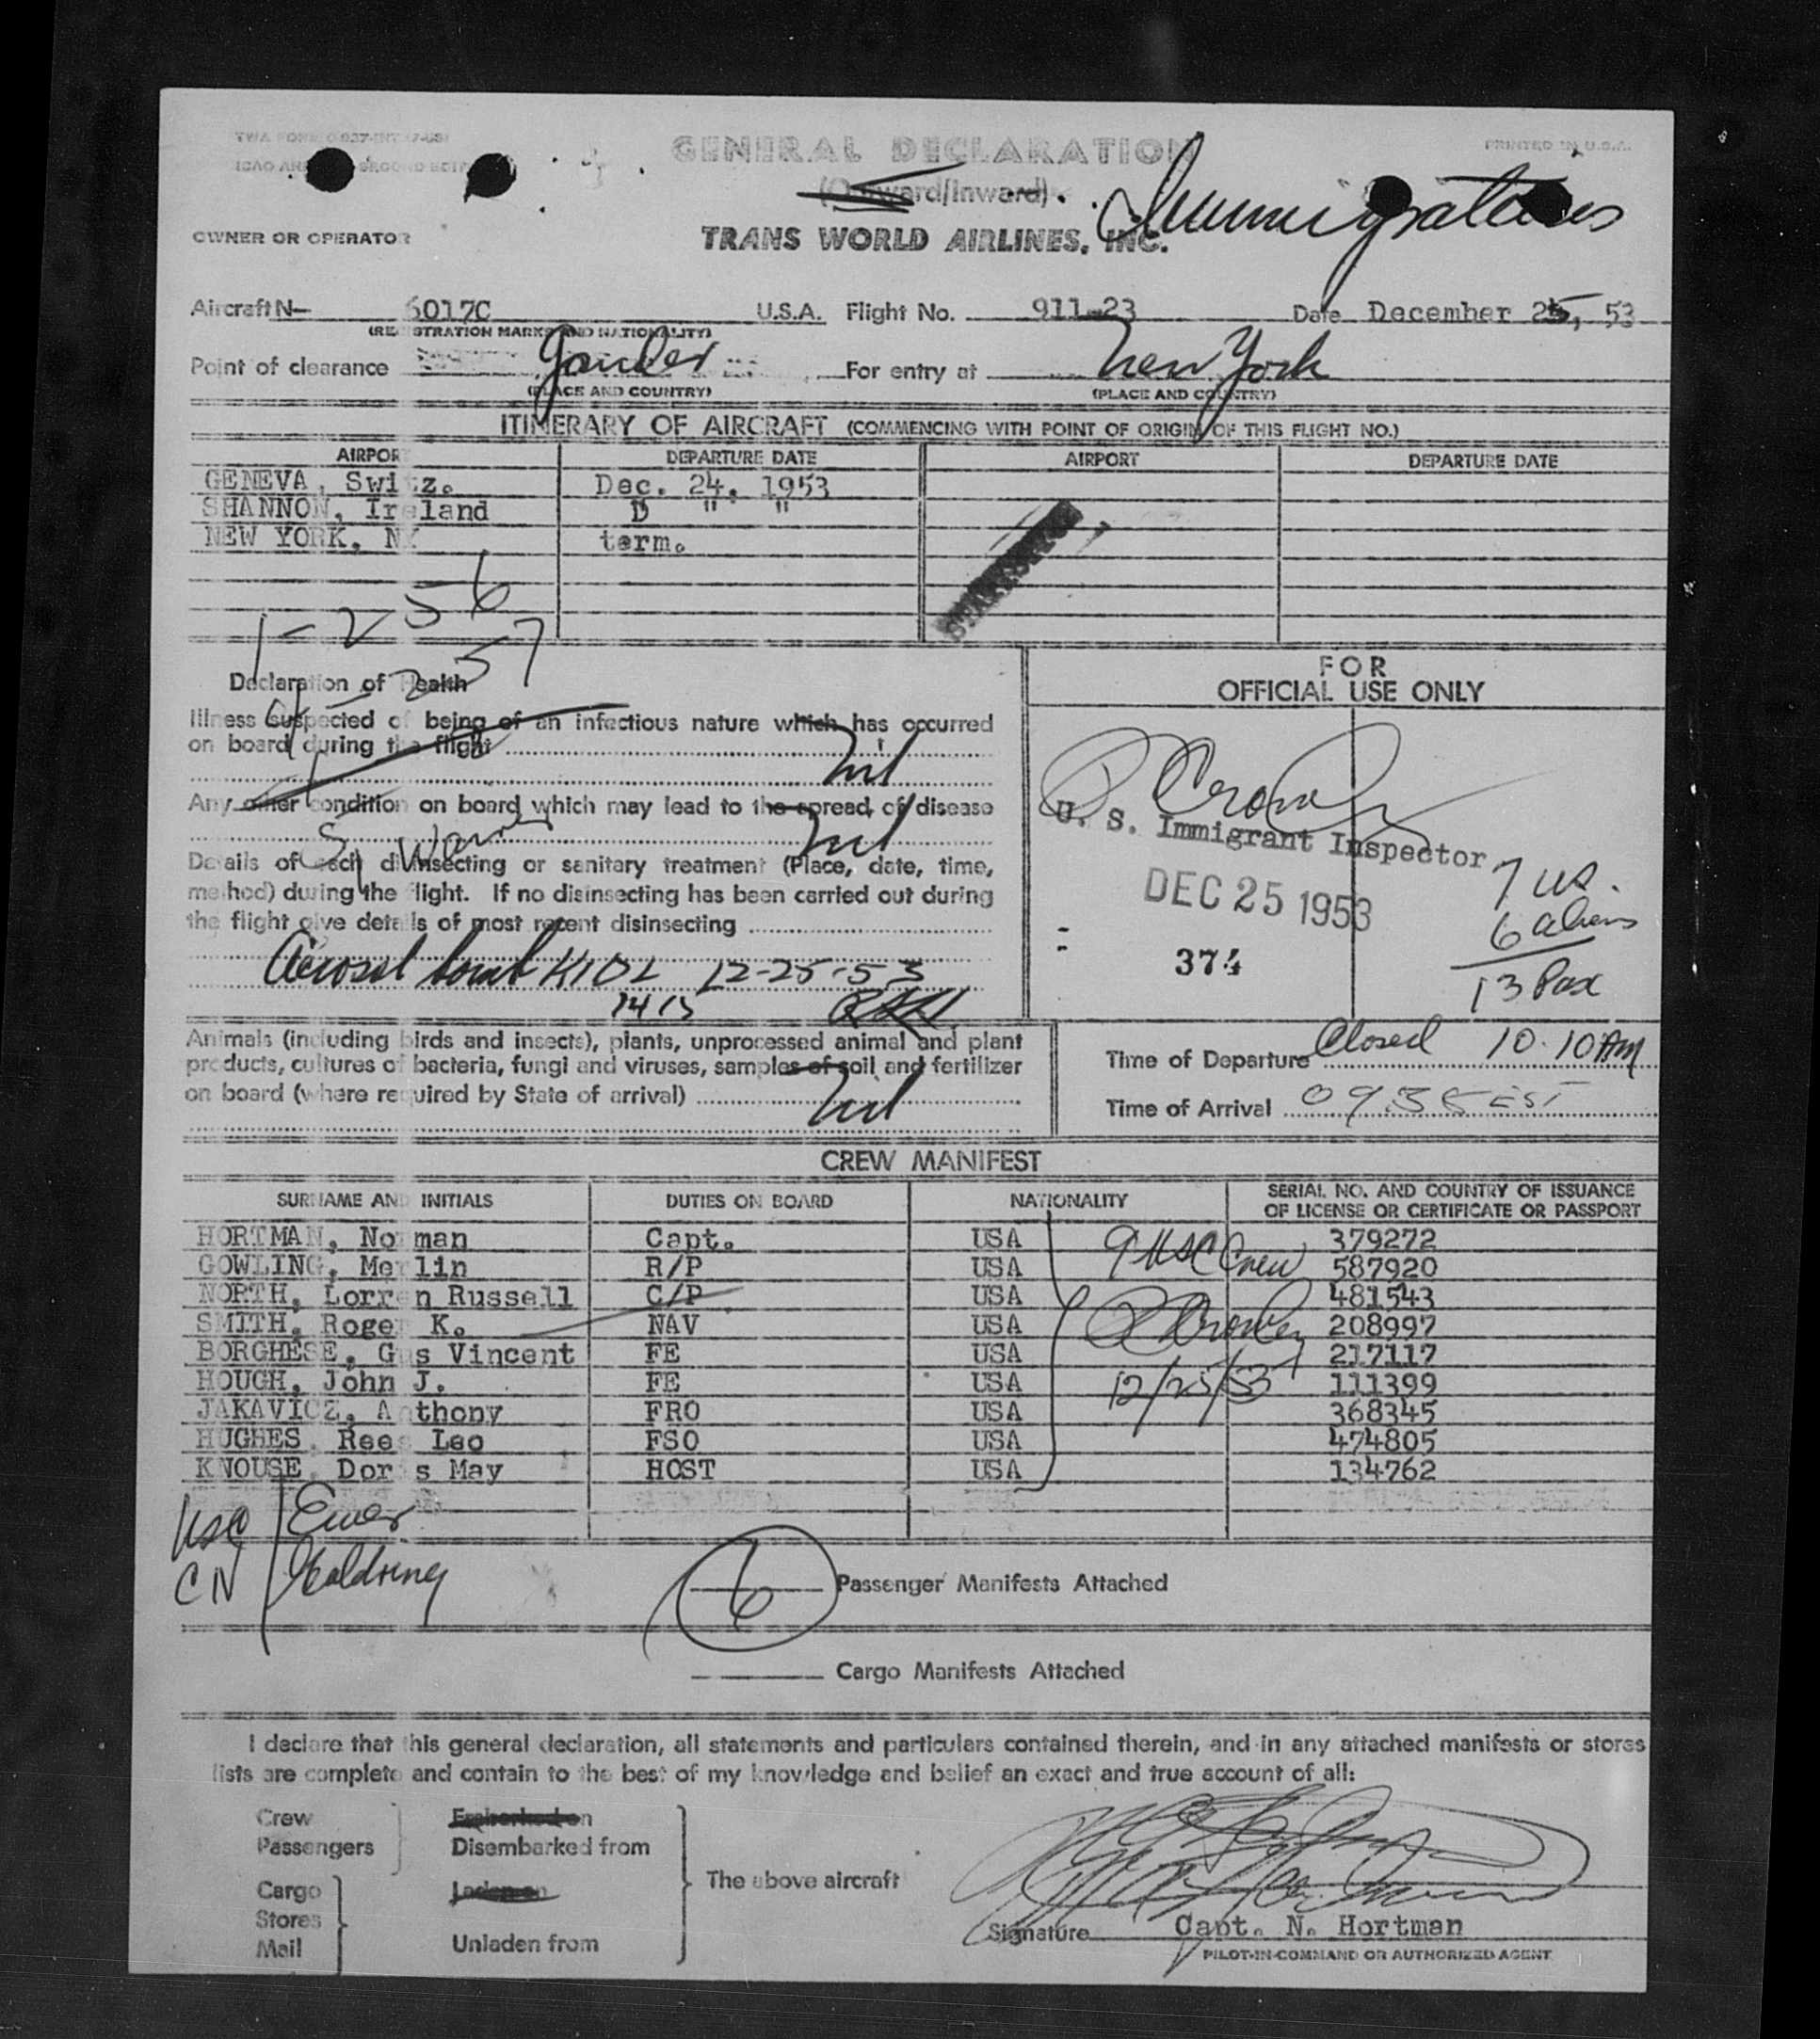 GENERAL DECLARATION
PRINTED IN U.S.A.
(Outward/Inward)
Immigration
OWNER OR OPERATOR
TRANS WORLD AIRLINES, INC.
Aircraft N— 6017C U.S.A. Flight No. 911-23 Date December 25, 53
(REGISTRATION MARKS AND NATIONALITY)
Point of clearance Gander For entry at New York
(PLACE AND COUNTRY) (PLACE AND COUNTRY)
ITINERARY OF AIRCRAFT (COMMENCING WITH POINT OF ORIGIN OF THIS FLIGHT NO.)
AIRPORT DEPARTURE DATE AIRPORT DEPARTURE DATE
GENEVA, Switz. Dec. 24, 1953
SHANNON, Ireland D " "
NEW YORK, NY term.
1-256
257
Declaration of Health
Illness suspected of being of an infectious nature which has occurred
on board during the flight
Nil
Any other condition on board which may lead to the spread of disease
Nil
Details of each disinsecting or sanitary treatment (Place, date, time,
method) during the flight. If no disinsecting has been carried out during
the flight give details of most recent disinsecting
Aerosol bomb KIDL 12-25-53
1413
Animals (including birds and insects), plants, unprocessed animal and plant
products, cultures of bacteria, fungi and viruses, samples of soil and fertilizer
on board (where required by State of arrival)
Nil
FOR
OFFICIAL USE ONLY
U. S. Immigrant Inspector
DEC 25 1953
374
7 US.
6 aliens
13 Pax
Time of Departure Closed 10.10 AM
Time of Arrival 0935 EST
CREW MANIFEST
SURNAME AND INITIALS DUTIES ON BOARD NATIONALITY SERIAL NO. AND COUNTRY OF ISSUANCE
OF LICENSE OR CERTIFICATE OR PASSPORT
HORTMAN, Norman Capt. USA 379272
GOWLING, Merlin R/P USA 587920
NORTH, Lorren Russell C/P USA 481543
SMITH, Roger K. NAV USA 208997
BORGHESE, Gus Vincent FE USA 217117
HOUGH, John J. FE USA 111399
JAKAVICZ, Anthony FRO USA 368345
HUGHES, Rees Leo FSO USA 474805
KNOUSE, Doris May HOST USA 134762
9 USC Crew
12/25/53
USC
CN Goldring
6 Passenger Manifests Attached
Cargo Manifests Attached
I declare that this general declaration, all statements and particulars contained therein, and in any attached manifests or stores
lists are complete and contain to the best of my knowledge and belief an exact and true account of all:
Crew Embarked on
Passengers Disembarked from
The above aircraft
Cargo Laden on
Stores
Mail Unladen from
Signature Capt. N. Hortman
PILOT-IN-COMMAND OR AUTHORIZED AGENT